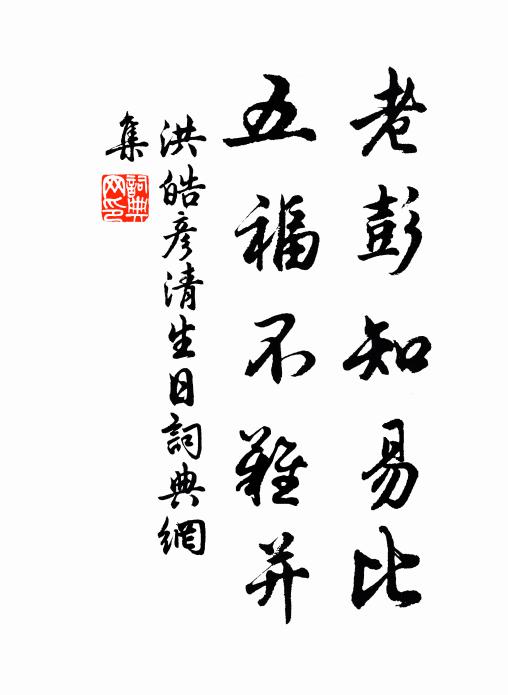 老彭知易比
五福不難并
洪皓彦清生日詞典網
集
詞典
网印